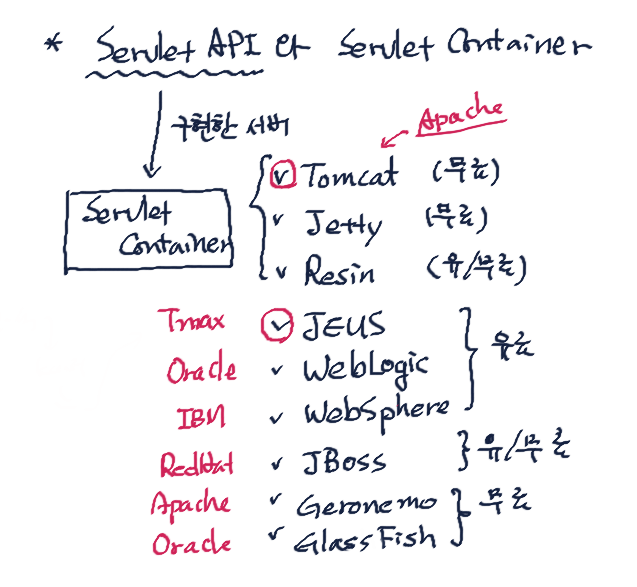 * Servlet API 와 Servlet Container
구현한 서버
Apache
Servlet Container
✓ Tomcat (무료)
✓ Jetty (무료)
✓ Resin (유/무료)
Tmax ✓ JEUS
Oracle ✓ WebLogic
유료
IBM ✓ WebSphere
RedHat ✓ JBoss 유/무료
Apache ✓ Geronemo
무료
Oracle ✓ GlassFish